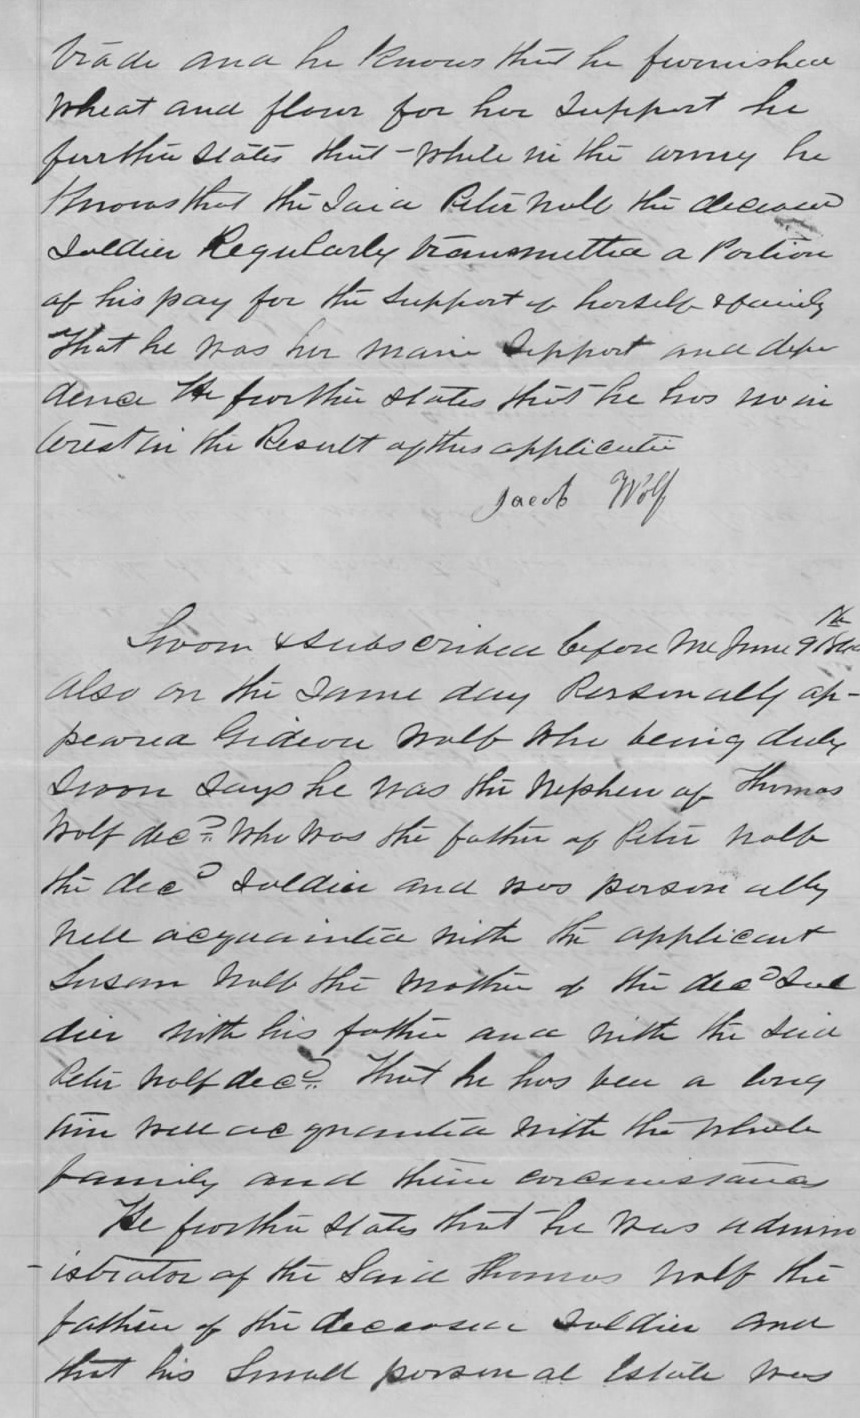 trade and he knows that he furnished
Wheat and flour for her Support he
further States that - while in the army he
Knows that the Said Peter Wolf the deceased
Soldier Regularly transmitted a Portion
of his pay for the Support of herself & family
That he was her main Support and depen
dence He further states that he has no in
terest in the Result of this application
Jacob Wolf
Sworn & subscribed before Me June 9th
also on the Same day Personally ap-
peared Gideon Wolf Who being duly
Sworn Says he was the Nephew of Thomas
Wolf decd. Who Was the father of Peter Wolf
the decd Soldier and was personally
well acquainted with the applicant
Susan Wolf the Mother of the decd Sol
dier with his father and with the Said
Peter Wolf decd. That he has been a long
time well acquainted with the whole
family and their circumstances
He further States that he was admin
-istrator of the Said Thomas Wolf the
father of the deceased Soldier and
that his Small personal Estate was